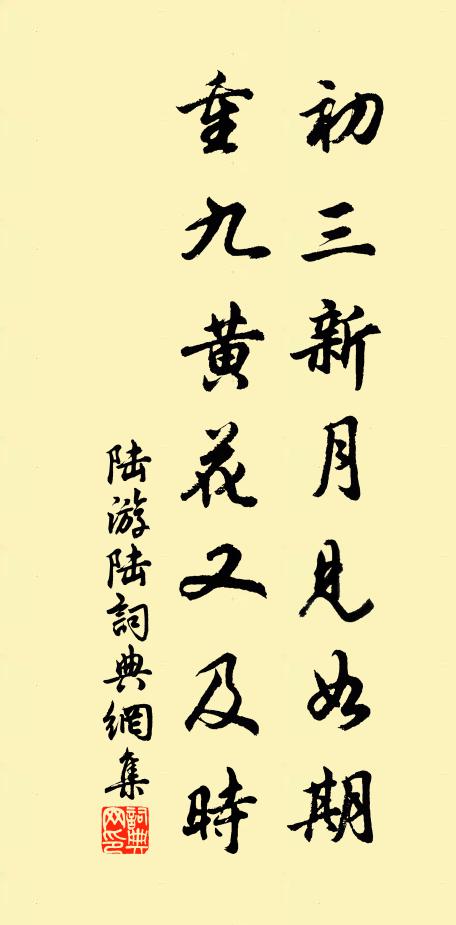 初三新月見如期
重九黄花又及時
陆游陆詞典網集
詞典网印